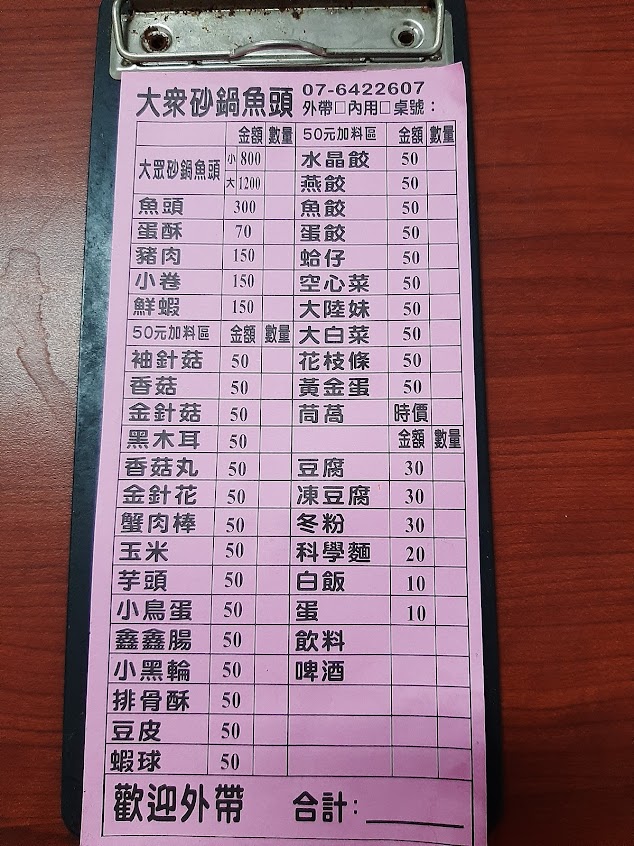 大衆砂鍋魚頭 07-6422607
外帶□內用□桌號：
金額 數量
大眾砂鍋魚頭 小 800
大 1200
魚頭 300
蛋酥 70
豬肉 150
小卷 150
鮮蝦 150
50元加料區 金額 數量
袖針菇 50
香菇 50
金針菇 50
黑木耳 50
香菇丸 50
金針花 50
蟹肉棒 50
玉米 50
芋頭 50
小鳥蛋 50
鑫鑫腸 50
小黑輪 50
排骨酥 50
豆皮 50
蝦球 50
50元加料區 金額 數量
水晶餃 50
燕餃 50
魚餃 50
蛋餃 50
蛤仔 50
空心菜 50
大陸妹 50
大白菜 50
花枝條 50
黃金蛋 50
茼萵 時價
金額 數量
豆腐 30
凍豆腐 30
冬粉 30
科學麵 20
白飯 10
蛋 10
飲料
啤酒
歡迎外帶 合計：